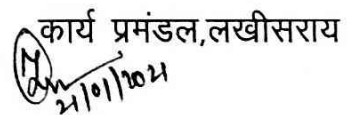 कार्य प्रमंडल,लखीसराय
21/01/2021